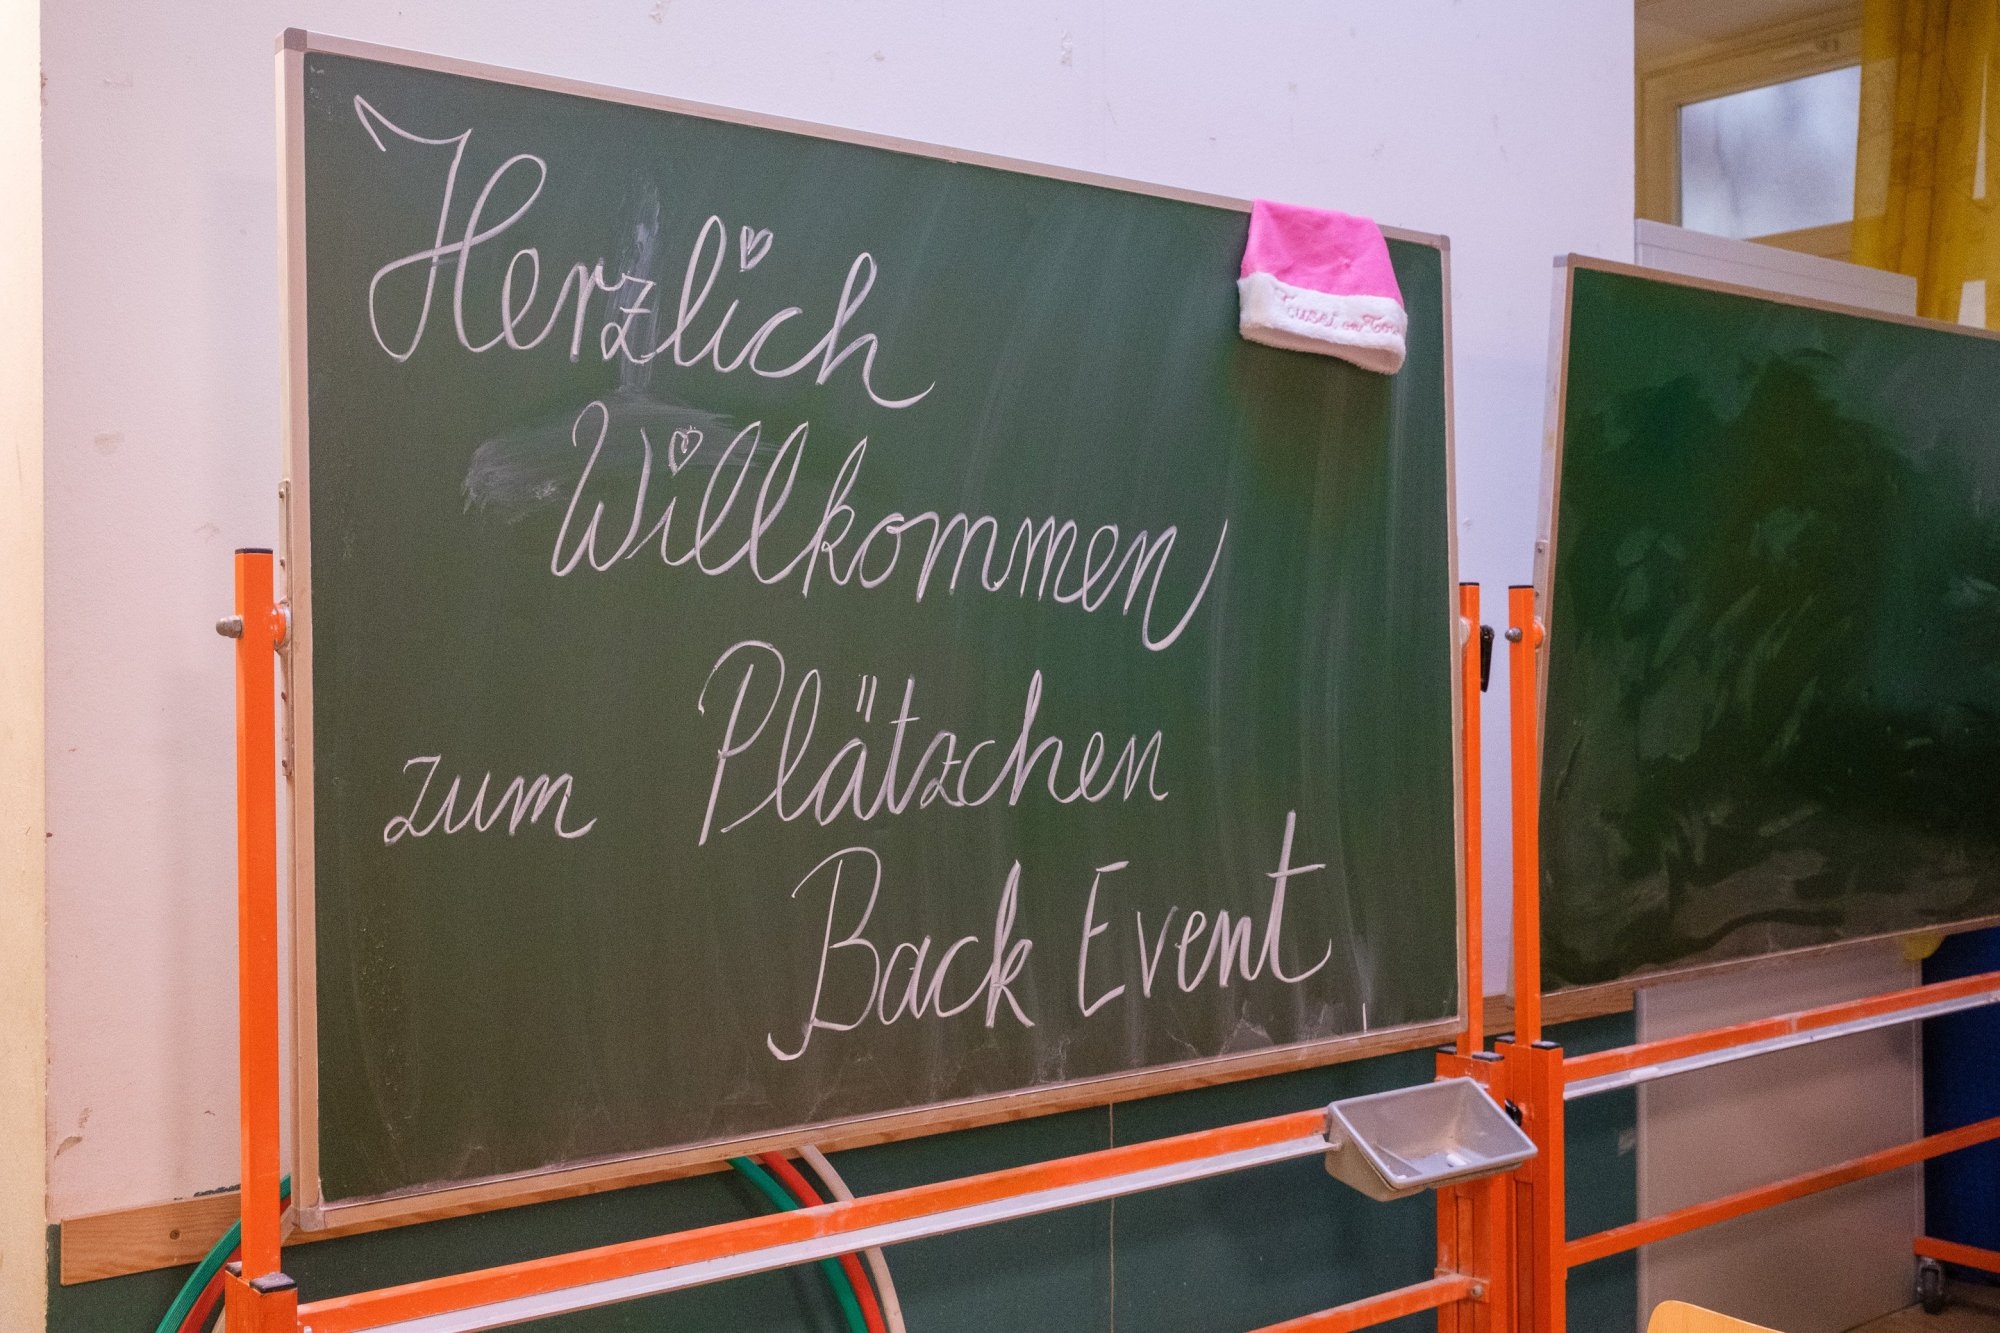 Herzlich
Willkommen
zum Plätzchen
Back Event